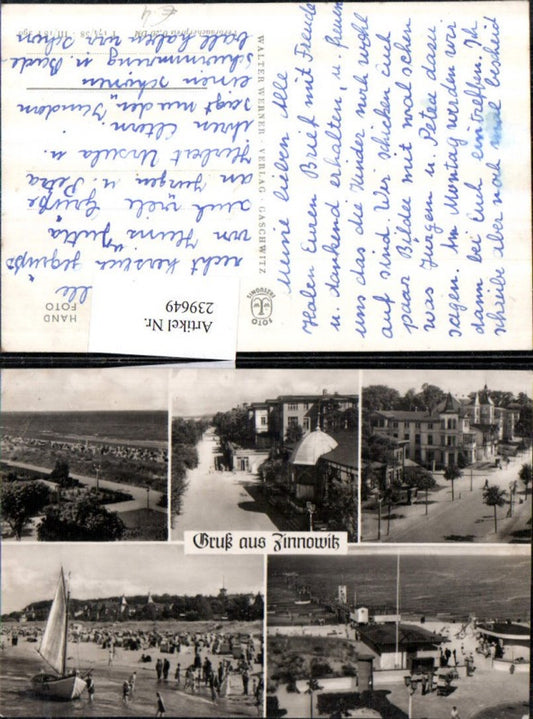 Meine lieben Alle
Haben Euren Brief mit Freude
u. dankend erhalten, u. freuen
uns das die Kinder noch wohl
auf sind. Wir schicken euch
paar Bilder mit mal schen
was Jürgen u. Peter dazu
sagen. Im Montag werden wir
dann bei Euch eintreffen. Ich
schreibe aber noch mal bescheid
recht herzlich gegrüßt
von Heinz Jutta
auch viele Grüße
an Jürgen u. Petra
Herbert Ursula u.
ihren Eltern.
sagt nur den Kindern
einen schönen
bald haben wir schon
Alle
WALTER WERNER · VERLAG · GASCHWITZ
HAND
FOTO
FOTO
Artikel Nr.
239649
€ 4
Gruß aus Zinnowitz